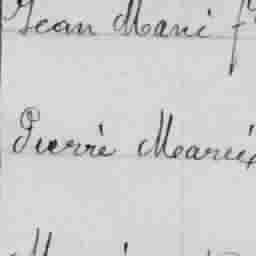 Jean Marie f
Pierre Marie